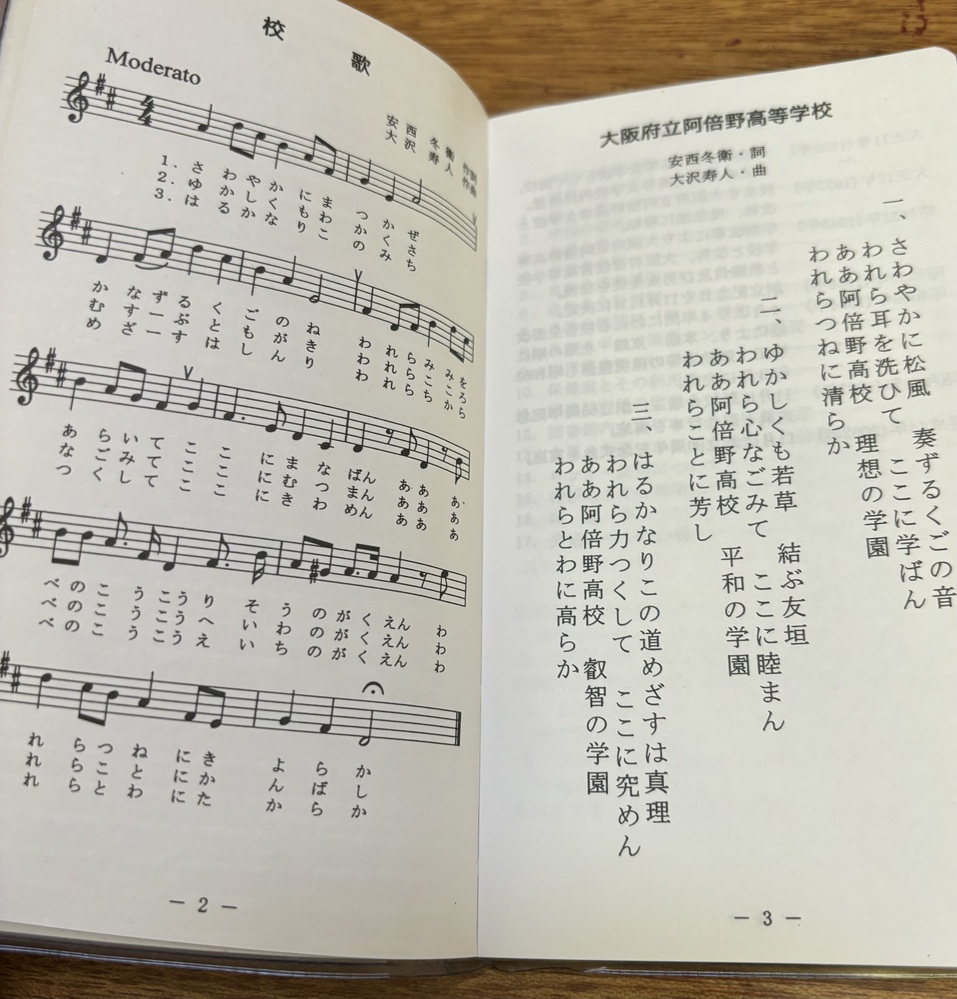 校 歌
Moderato
安西冬衛 作詞
大沢寿人 作曲
1. さわやかに まつかぜ
2. ゆかしくも わかくさ
3. はるかなり このみち
かなずるくごのね われらみみを
むすぶともがき われらこころ
めざすはしんり われらちから
あらいてここにまなばん ああああ
なごみてここにむつまん ああああ
つくしてここにきわめん ああああ
べのこうこう りそうのがくえん わ
べのこうこう へいわのがくえん わ
べのこうこう えいちのがくえん わ
れらつねにきよらか
れらことにかんばし
れらとわにたからか
— 2 —
大阪府立阿倍野高等学校
安西冬衛・詞
大沢寿人・曲
一、さわやかに松風 奏ずるくごの音
われら耳を洗ひて ここに学ばん
ああ阿倍野高校 理想の学園
われらつねに清らか
二、ゆかしくも若草 結ぶ友垣
われら心なごみて ここに睦まん
ああ阿倍野高校 平和の学園
われらことに芳し
三、はるかなりこの道めざすは真理
われら力つくして ここに究めん
ああ阿倍野高校 叡智の学園
われらとわに高らか
— 3 —